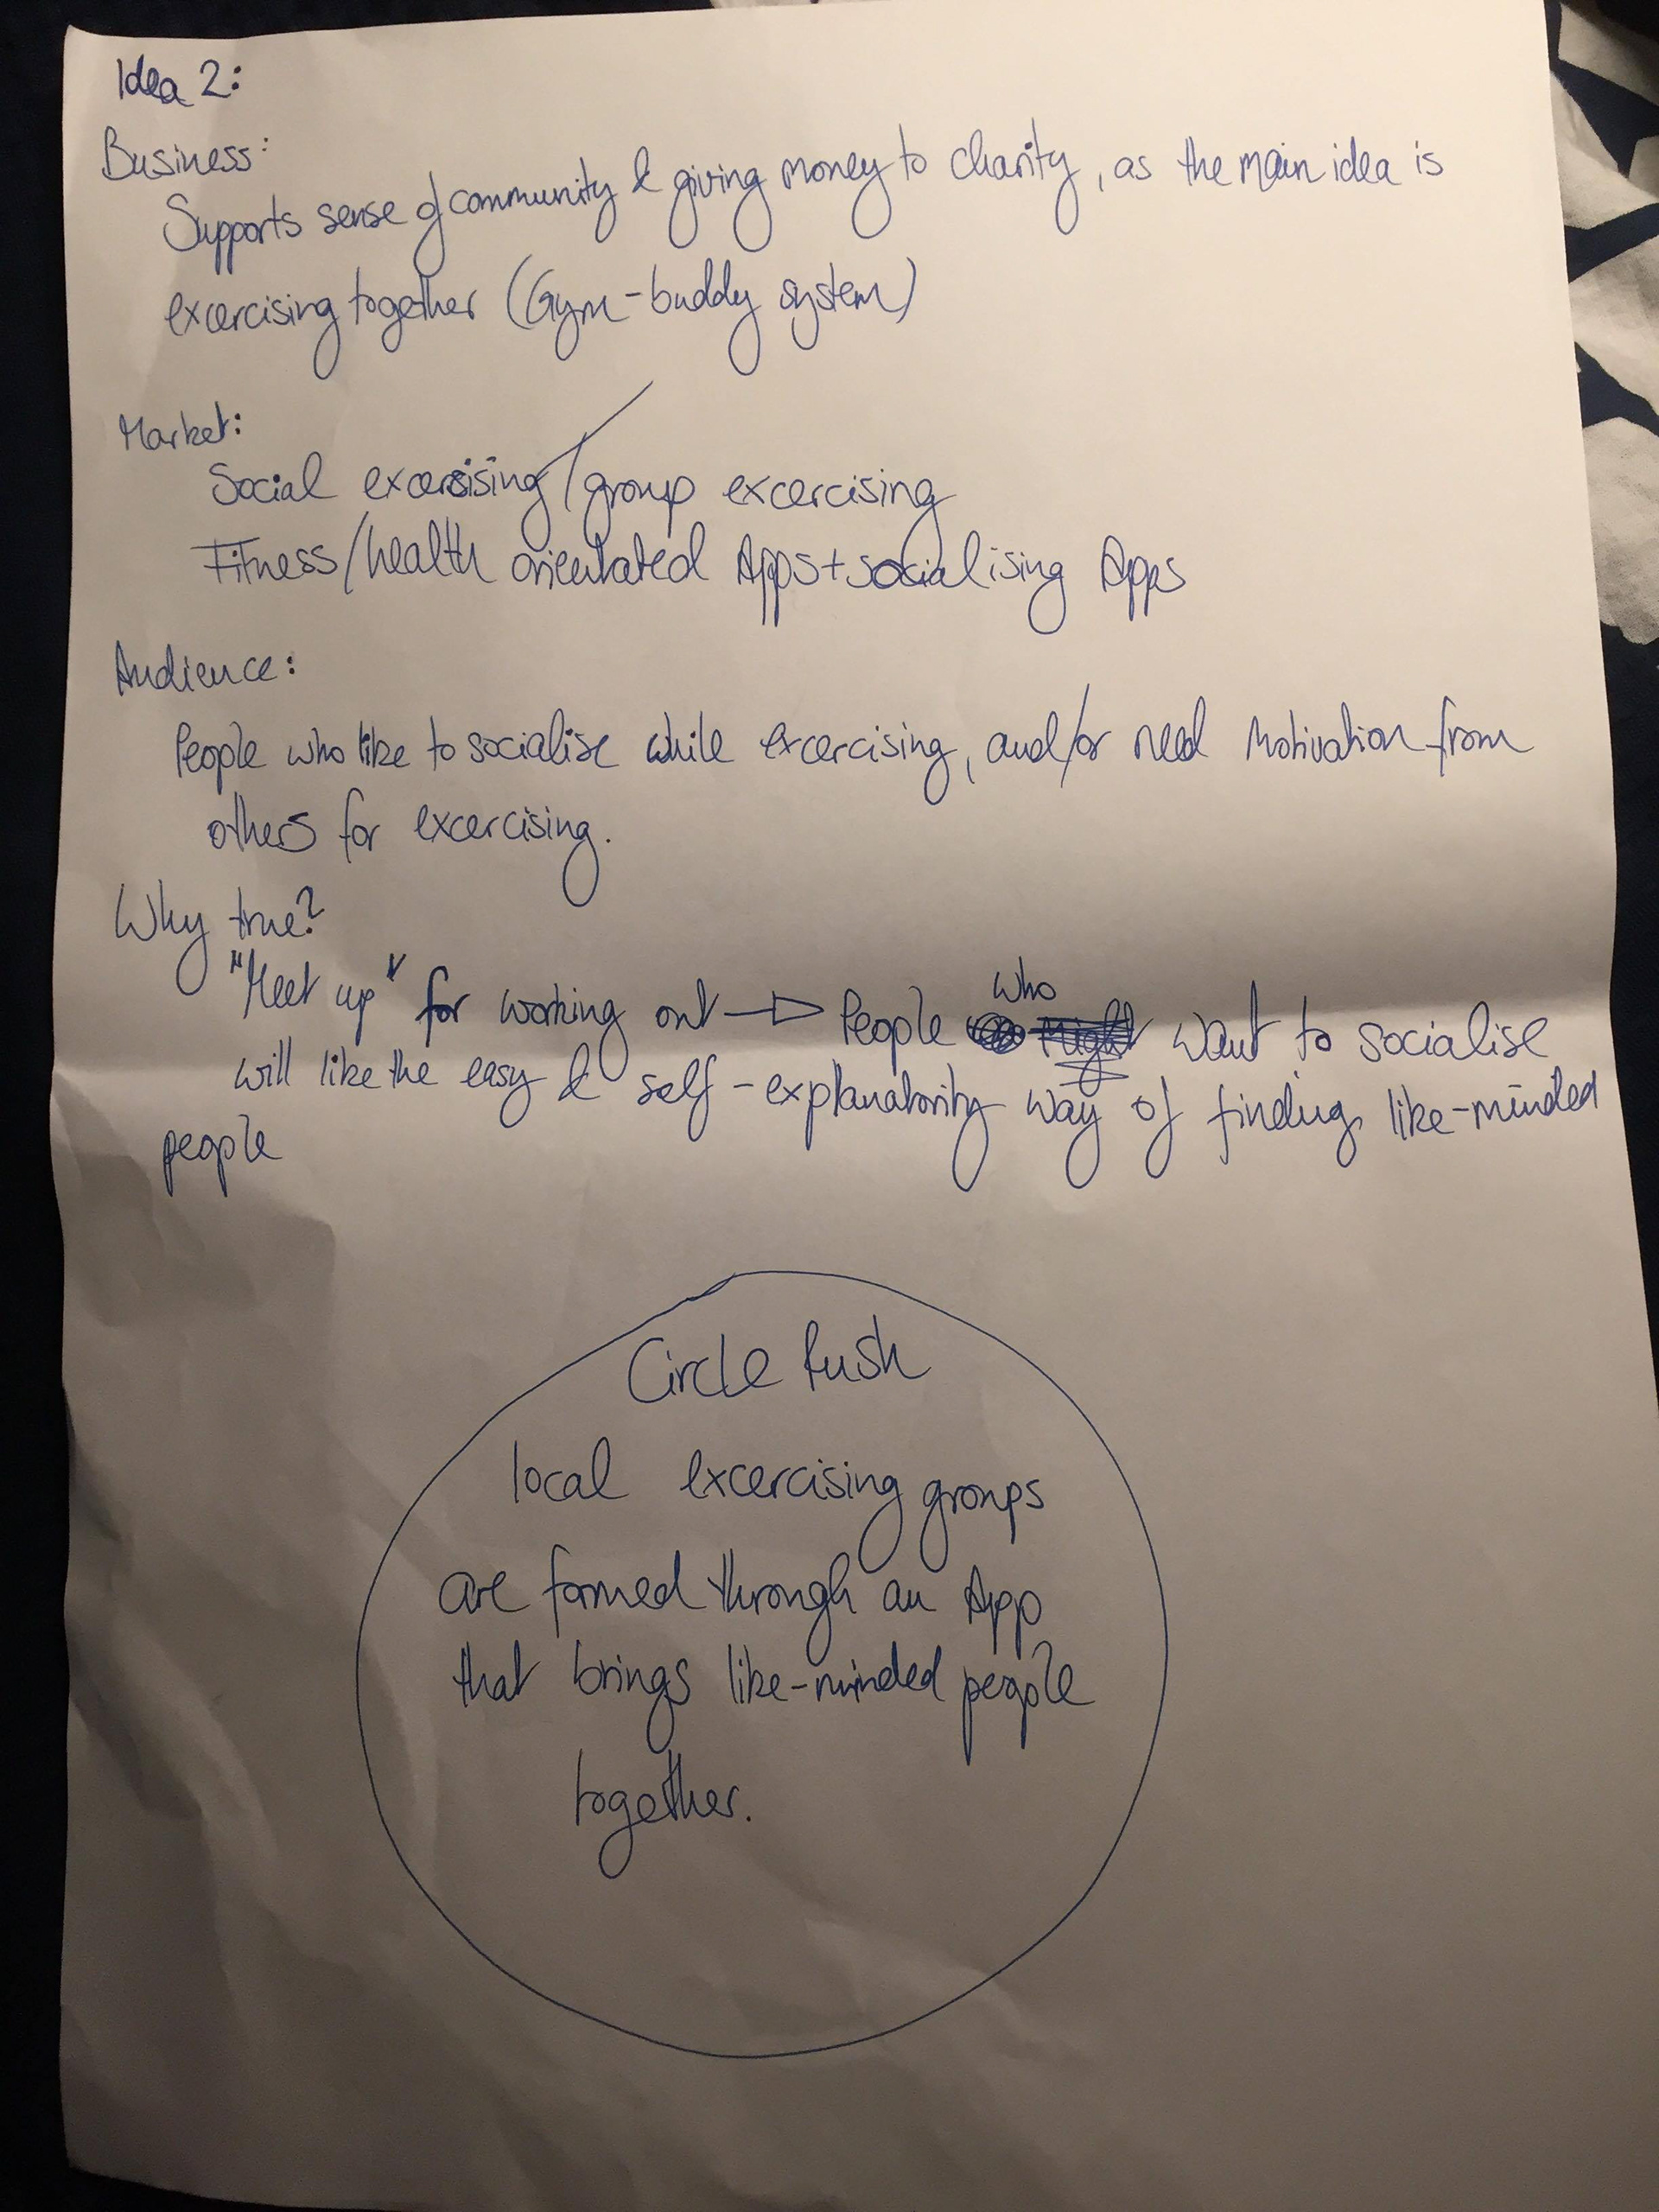 Idea 2:
Business:
Supports sense of community & giving money to charity, as the main idea is
excercising together (Gym-buddy system)
Market:
Social excercising/group excercising
Fitness/health orientated Apps+socialising Apps
Audience:
People who like to socialise while excercising, and/or need motivation from
others for excercising.
Why true?
"Meet up" for working out → People who want to socialise
will like the easy & self-explanatority way of finding like-minded
people
Circle Rush
local excercising groups
are formed through an App
that brings like-minded people
together.